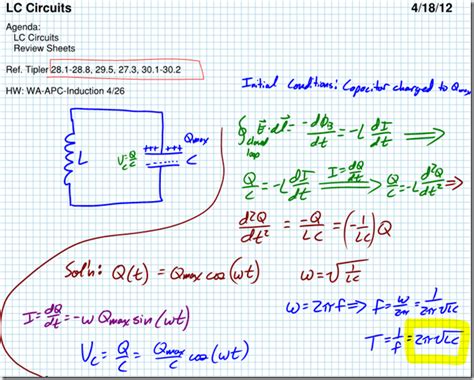 LC Circuits
4/18/12
Agenda:
LC Circuits
Review Sheets
Ref. Tipler 28.1-28.8, 29.5, 27.3, 30.1-30.2
HW: WA-APC-Induction 4/26
Initial Conditions: Capacitor charged to Qmax
L
V_C=Q/C
+++ +++
Qmax
C
∮closed loop E⃗·dl⃗ = -dΦ_B/dt = -L dI/dt ⟹
Q/C = -L dI/dt ⟹ I=dQ/dt Q/C = -L d²Q/dt² ⟹
d²Q/dt² = -Q/LC = (-1/LC)Q
Soln: Q(t) = Qmax cos(ωt)
ω=√1/LC
I=dQ/dt = -ω Qmax sin(ωt)
ω=2πf ⟹ f=ω/2π = 1/2π√LC
V_C = Q/C = Qmax/C cos(ωt)
T=1/f = 2π√LC